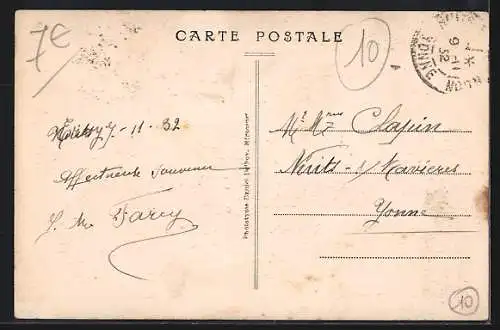 7€
CARTE POSTALE
10
9-11
32
YONNE
7-11-32
Affectueux souvenir
Farcy
Mr Mme Clapin
Nuits-s/Ravières
Yonne
Phototypie Daniel Delboy, Mirecourt
10